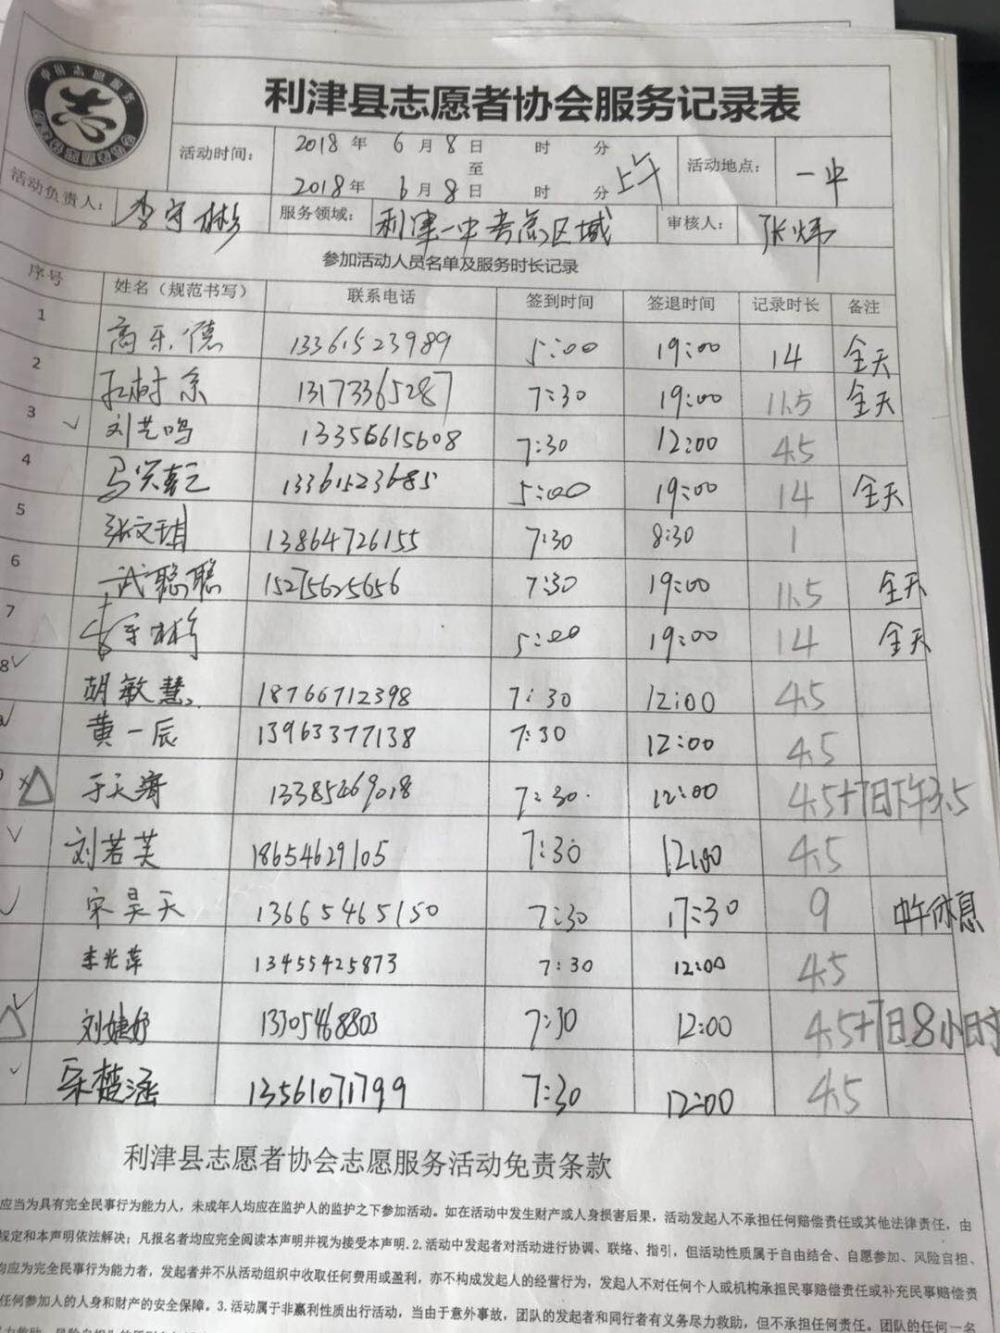 利津县志愿者协会服务记录表
活动时间: 2018年 6月8日 时 分
至
2018年 6月8日 时 分 上午
活动地点: 一中
活动负责人: 李守彬 服务领域: 利津一中考点区域 审核人: 张炜
参加活动人员名单及服务时长记录
序号 姓名（规范书写） 联系电话 签到时间 签退时间 记录时长 备注
1 高乐德 13361523989 5:00 19:00 14 全天
2 树 13173365287 7:30 19:00 11.5 全天
3 刘艺鸣 13356615608 7:30 12:00 4.5
4 马 13361523685 5:00 19:00 14 全天
5 张文琪 13864726155 7:30 8:30 1
6 武聪聪 15275625656 7:30 19:00 11.5 全天
7 李守彬 5:00 19:00 14 全天
8 胡敏慧 18766712398 7:30 12:00 4.5
黄一辰 13963377138 7:30 12:00 4.5
于天 13385469018 7:30 12:00 4.5+7日下午3.5
刘若芙 18654629105 7:30 12:00 4.5
宋昊天 13665465150 7:30 17:30 9 中午休息
李光萍 13455425873 7:30 12:00 4.5
刘婕妤 13305468803 7:30 12:00 4.5+7日8小时
楚涵 13561071799 7:30 12:00 4.5
利津县志愿者协会志愿服务活动免责条款
应当为具有完全民事行为能力人，未成年人均应在监护人的监护之下参加活动。如在活动中发生财产或人身损害后果，活动发起人不承担任何赔偿责任或其他法律责任，由
规定和本声明依法解决；凡报名者均应完全阅读本声明并视为接受本声明.2.活动中发起者对活动进行协调、联络、指引，但活动性质属于自由结合、自愿参加、风险自担、
均应为完全民事行为能力者，发起者并不从活动组织中收取任何费用或盈利，亦不构成发起人的经营行为，发起人不对任何个人或机构承担民事赔偿责任或补充民事赔偿责
任何参加人的人身和财产的安全保障。3.活动属于非赢利性质出行活动，当由于意外事故，团队的发起者和同行者有义务尽力救助，但不承担任何责任。团队的任何一名